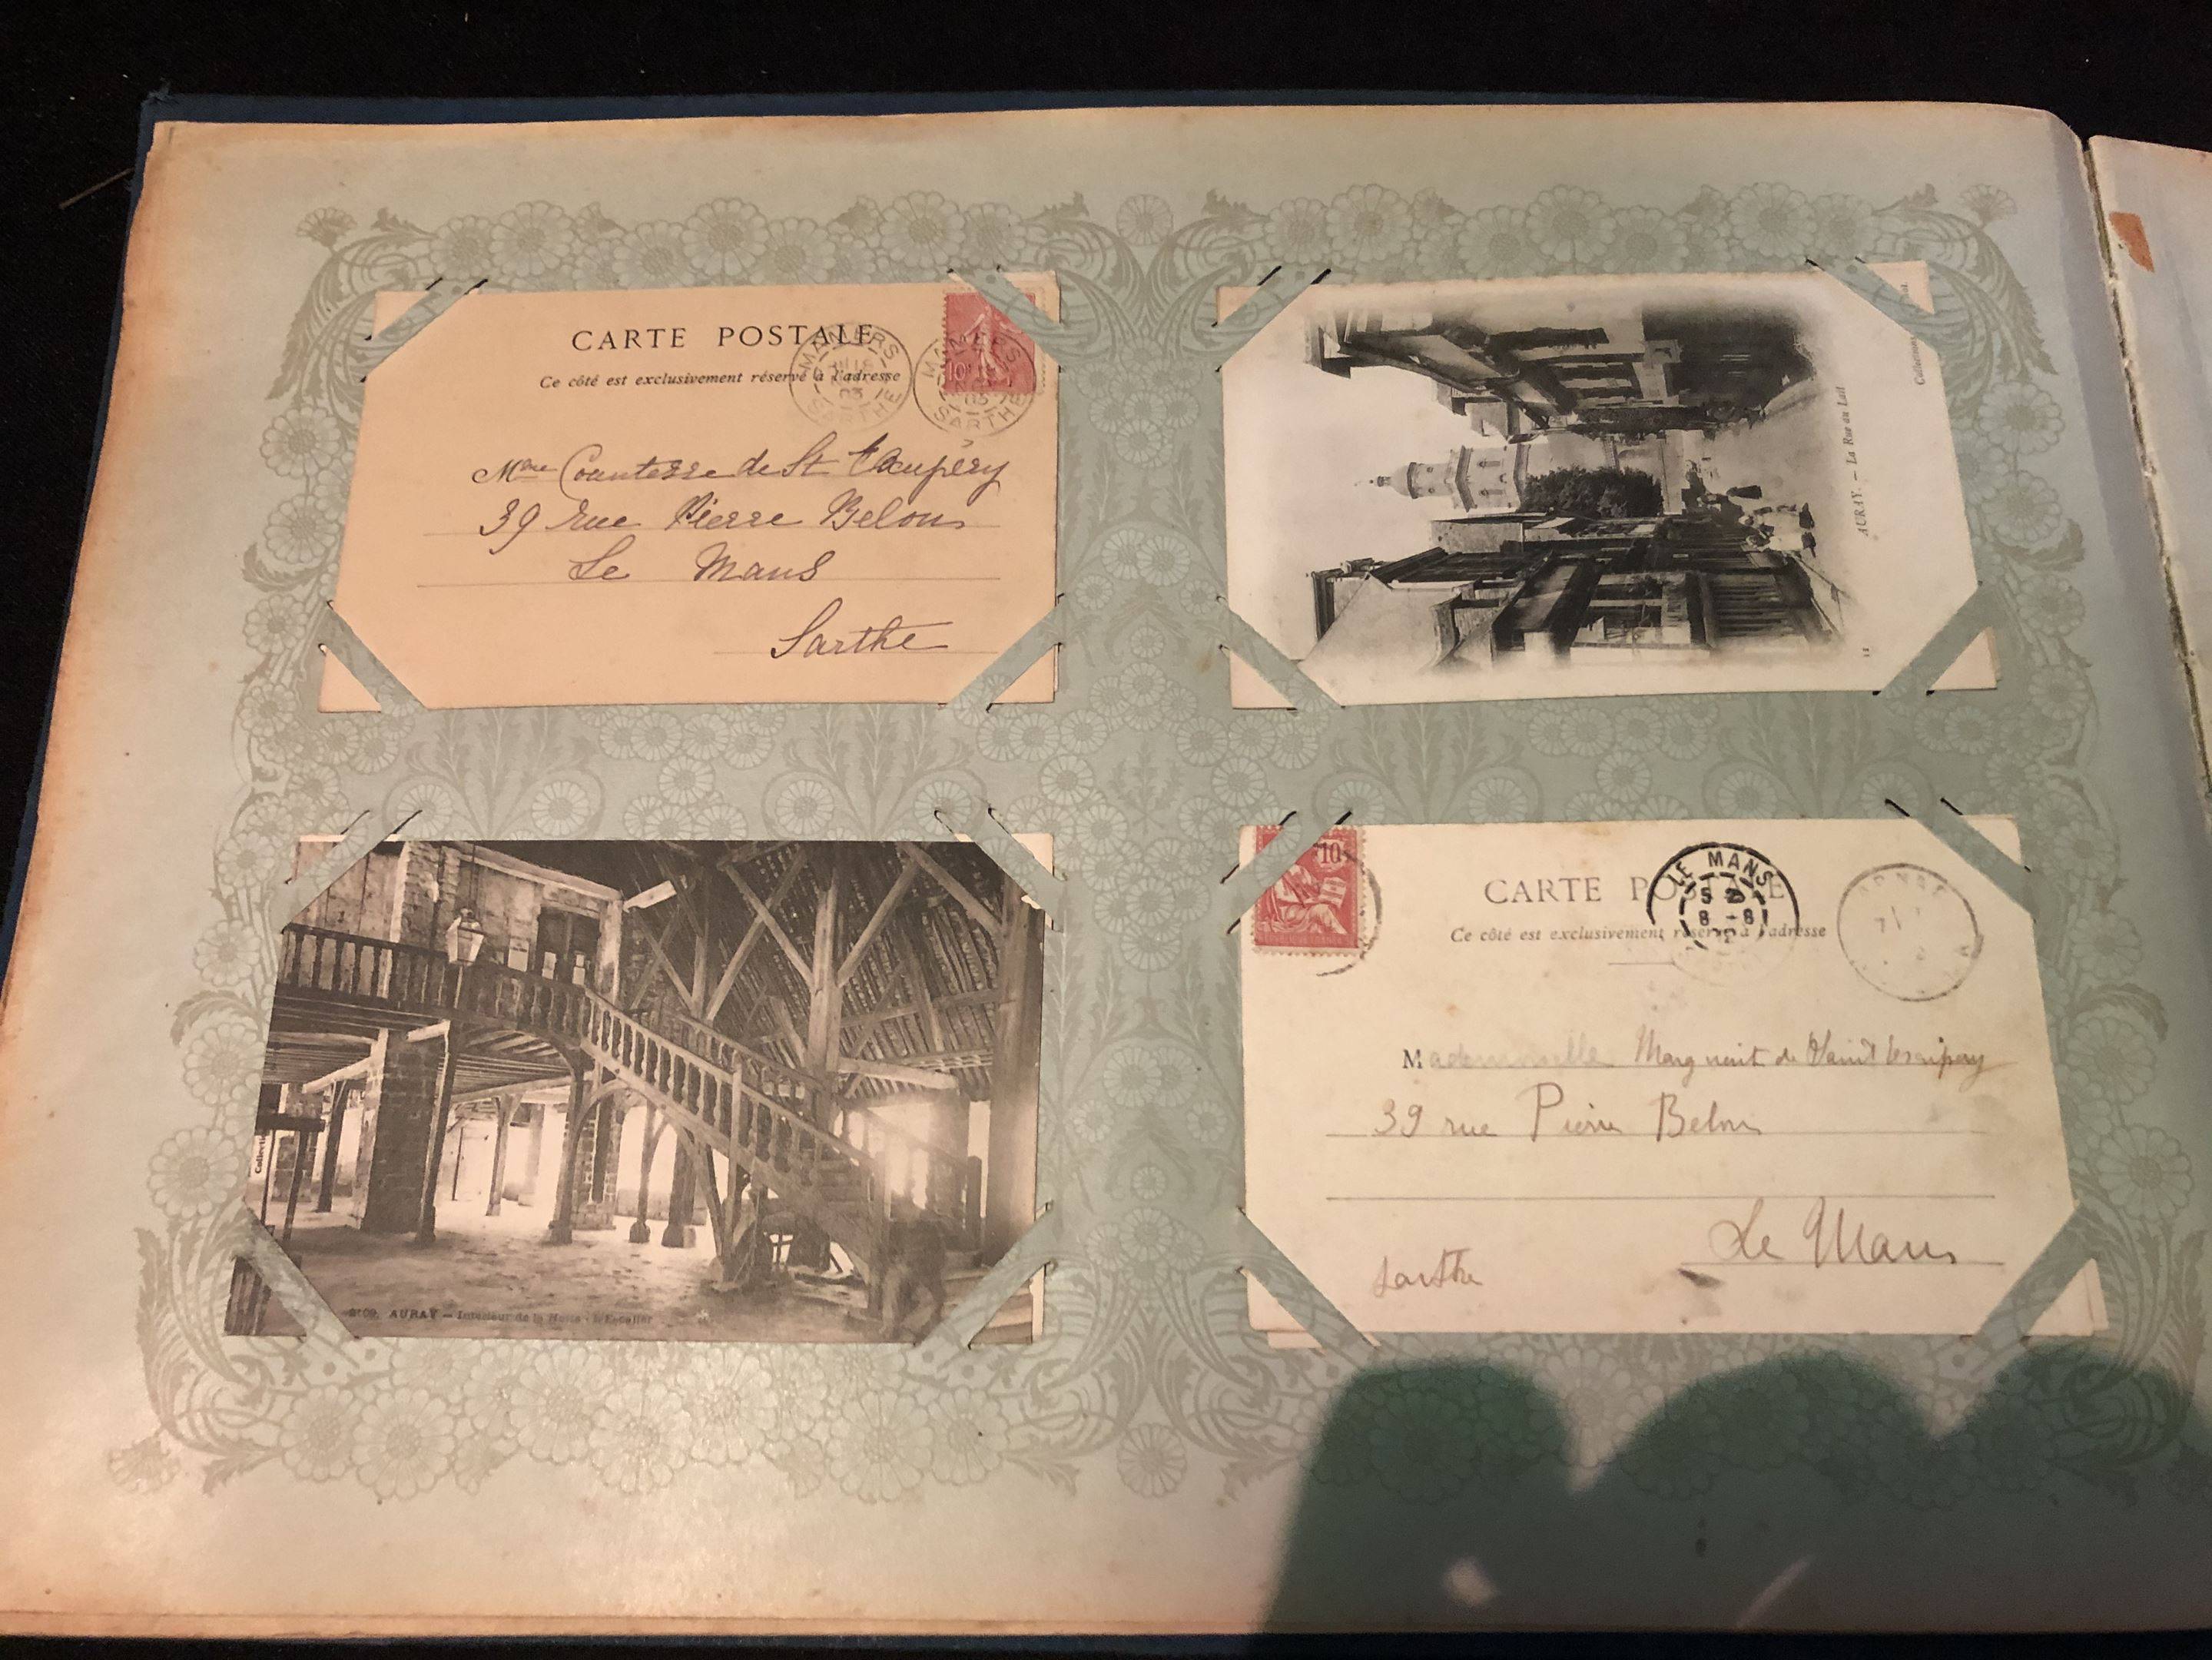 CARTE POSTALE
Ce côté est exclusivement réservé à l'adresse
MAMERS
03
SARTHE
MAMERS
03
SARTHE
10c
Mme Countesse de St Exupéry
39 rue Pierre Belon
Le Mans
Sarthe
AURAY. — La Rue du Lait
11
Collections
Collecti
2109. AURAY — Intérieur de la Halle - l'Escalier
10c
CARTE POSTALE
Ce côté est exclusivement réservé à l'adresse
LE MANS
Mademoiselle Marguerit de Saint Exupery
39 rue Pierre Belon
Le Mans
Sarthe